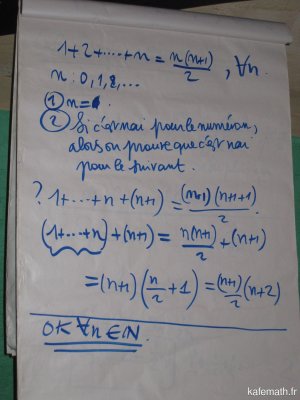 1+2+-----+n = n(n+1)/2 , ∀n.
n : 0,1,2,...
① n=
② Si c'est vrai pour le numéro n,
alors on prouve que c'est vrai
pour le suivant.
? 1+---+n+(n+1) = (n+1)(n+1+1)/2.
(1+---+n)+(n+1) = n(n+1)/2+(n+1)
=(n+1)(n/2+1)=(n+1)/2(n+2)
OK ∀n∈ℕ.
kafemath.fr